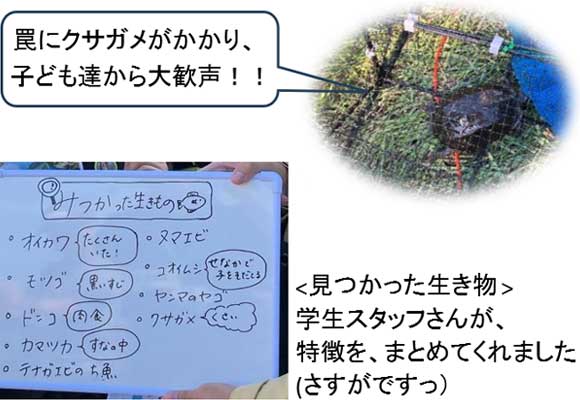 罠にクサガメがかかり、
子ども達から大歓声！！
みつかった生きもの
・オイカワ たくさんいた！
・モツゴ 黒いすじ
・ドンコ 肉食
・カマツカ すなの中
・テナガエビのち魚
・ヌマエビ
・コオイムシ せなかで子をもだてる
・ヤンマのヤゴ
・クサガメ くさい
<見つかった生き物>
学生スタッフさんが、
特徴を、まとめてくれました
(さすがですっ)